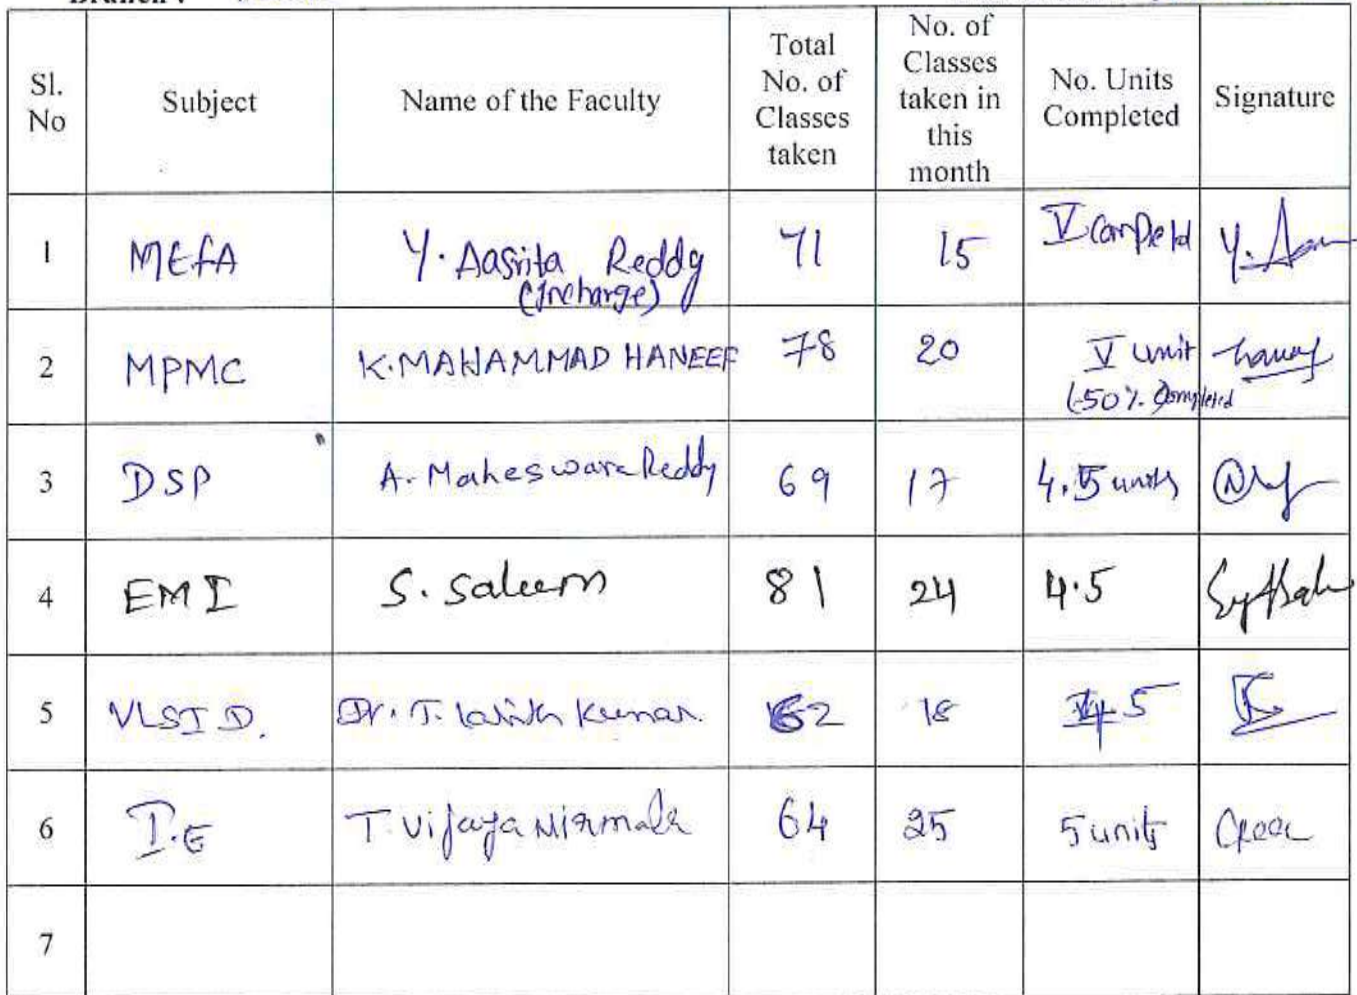 Sl. No | Subject | Name of the Faculty | Total No. of Classes taken | No. of Classes taken in this month | No. Units Completed | Signature
1 | MEFA | Y. Aasrita Reddy (Incharge) | 71 | 15 | V Completed | Y.
2 | MPMC | K. MAHAMMAD HANEEF | 78 | 20 | V unit (50% Completed
3 | DSP | A. Maheswara Reddy | 69 | 17 | 4.5 units
4 | EMI | S. Saleem | 81 | 24 | 4.5
5 | VLSI D. | Dr. T. Lalith Kumar. | 62 | 18 | 4.5
6 | I.E | T. Vijaya Nirmala | 64 | 25 | 5 units
7